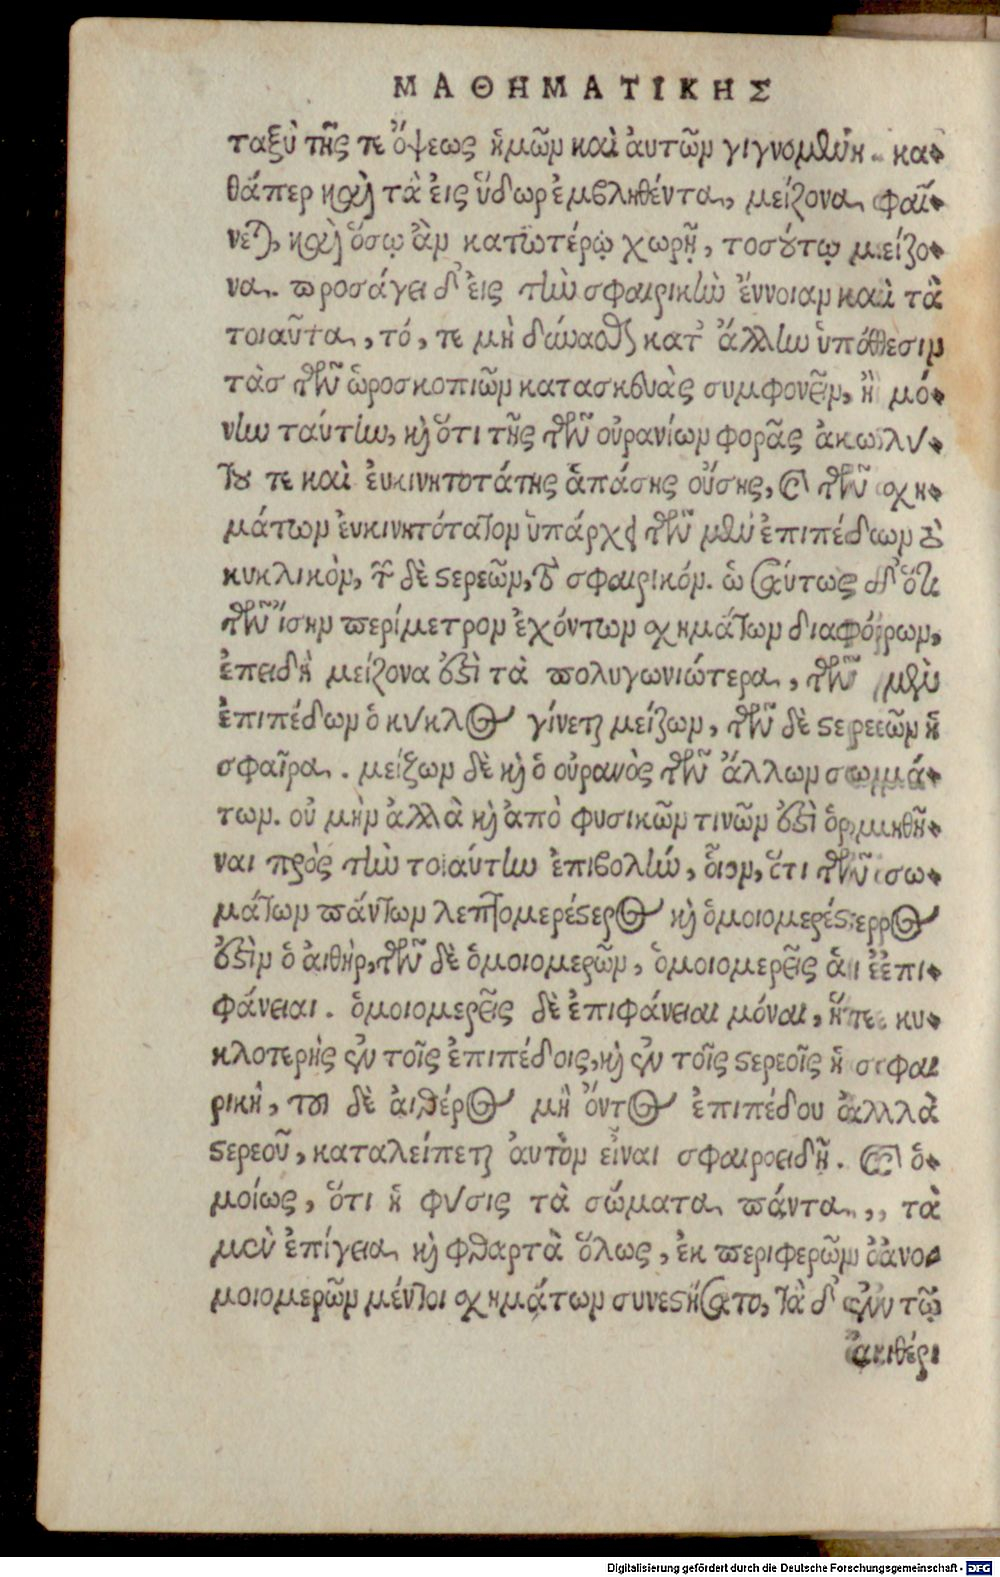 ΜΑΘΗΜΑΤΙΚΗΣ
ταξὺ τῆς τε ὄψεως ἡμῶν καὶ ἀυτῶν γιγνομένη. κα-
θάπερ καὶ τὰ ἐις ὕδωρ ἐμβληθέντα, μείζονα φαί-
νεται, καὶ ὅσῳ ἂν κατωτέρῳ χωρῇ, τοσούτῳ μείζο-
να. προσάγει δ' ἐις τὴν σφαιρικὴν ἔννοιαν καὶ τὰ
τοιαῦτα, τό, τε μὴ δύνασθαι κατ' ἄλλην ὑπόθεσιν
τὰσ τῶν ὡροσκοπιῶν κατασκευὰς συμφονεῖν, ἢ μό-
νην ταύτην, καὶ ὅτι τῆς τῶν οὐρανίων φορᾶς ἀκωλύ-
του τε καὶ ἐυκινητοτάτης ἁπάσης οὔσης, καὶ τῶν σχη-
μάτων ἐυκινητότατον ὑπάρχει τῶν μὲν ἐπιπέδων τὸ
κυκλικὸν, τῶν δὲ στερεῶν, τὸ σφαιρικόν. ὡσαύτως δ' ὅτι
τῶν ἴσην περίμετρον ἐχόντων σχημάτων διαφόρων,
ἐπειδὴ μείζονα ἐστὶ τὰ πολυγωνιώτερα, τῶν μὲν
ἐπιπέδων ὁ κύκλος γίνεται μείζων, τῶν δὲ στερεῶν ἡ
σφαῖρα. μείζων δὲ καὶ ὁ οὐρανὸς τῶν ἄλλων σωμά-
των. οὐ μὴν ἀλλὰ καὶ ἀπὸ φυσικῶν τινῶν ἐστὶ ὁρμηθῆ-
ναι πρὸς τὴν τοιαύτην ἐπιβολήν, οἷον, ὅτι τῶν σω-
μάτων πάντων λεπτομερέστερος καὶ ὁμοιομερέστερος
ἐστὶν ὁ ἀιθὴρ, τῶν δὲ ὁμοιομερῶν, ὁμοιομερεῖς ἁι ἐπι-
φάνειαι. ὁμοιομερεῖς δὲ ἐπιφάνειαι μόναι, ἥτε κυ-
κλοτερὴς ἐν τοῖς ἐπιπέδοις, καὶ ἐν τοῖς στερεοῖς ἡ σφαι
ρικὴ, του δὲ ἀιθέρος μὴ ὄντος ἐπιπέδου ἀλλὰ
στερεοῦ, καταλείπεται ἀυτὸν εἶναι σφαιροειδῆ. καὶ ὁ-
μοίως, ὅτι ἡ φύσις τὰ σώματα πάντα, τὰ
μὲν ἐπίγεια καὶ φθαρτὰ ὅλως, ἐκ περιφερῶν ἀνο-
μοιομερῶν μέντοι σχημάτων συνεστήσατο, τὰ δ' ἐν τῷ
ἀιθέρι
Digitalisierung gefördert durch die Deutsche Forschungsgemeinschaft - DFG